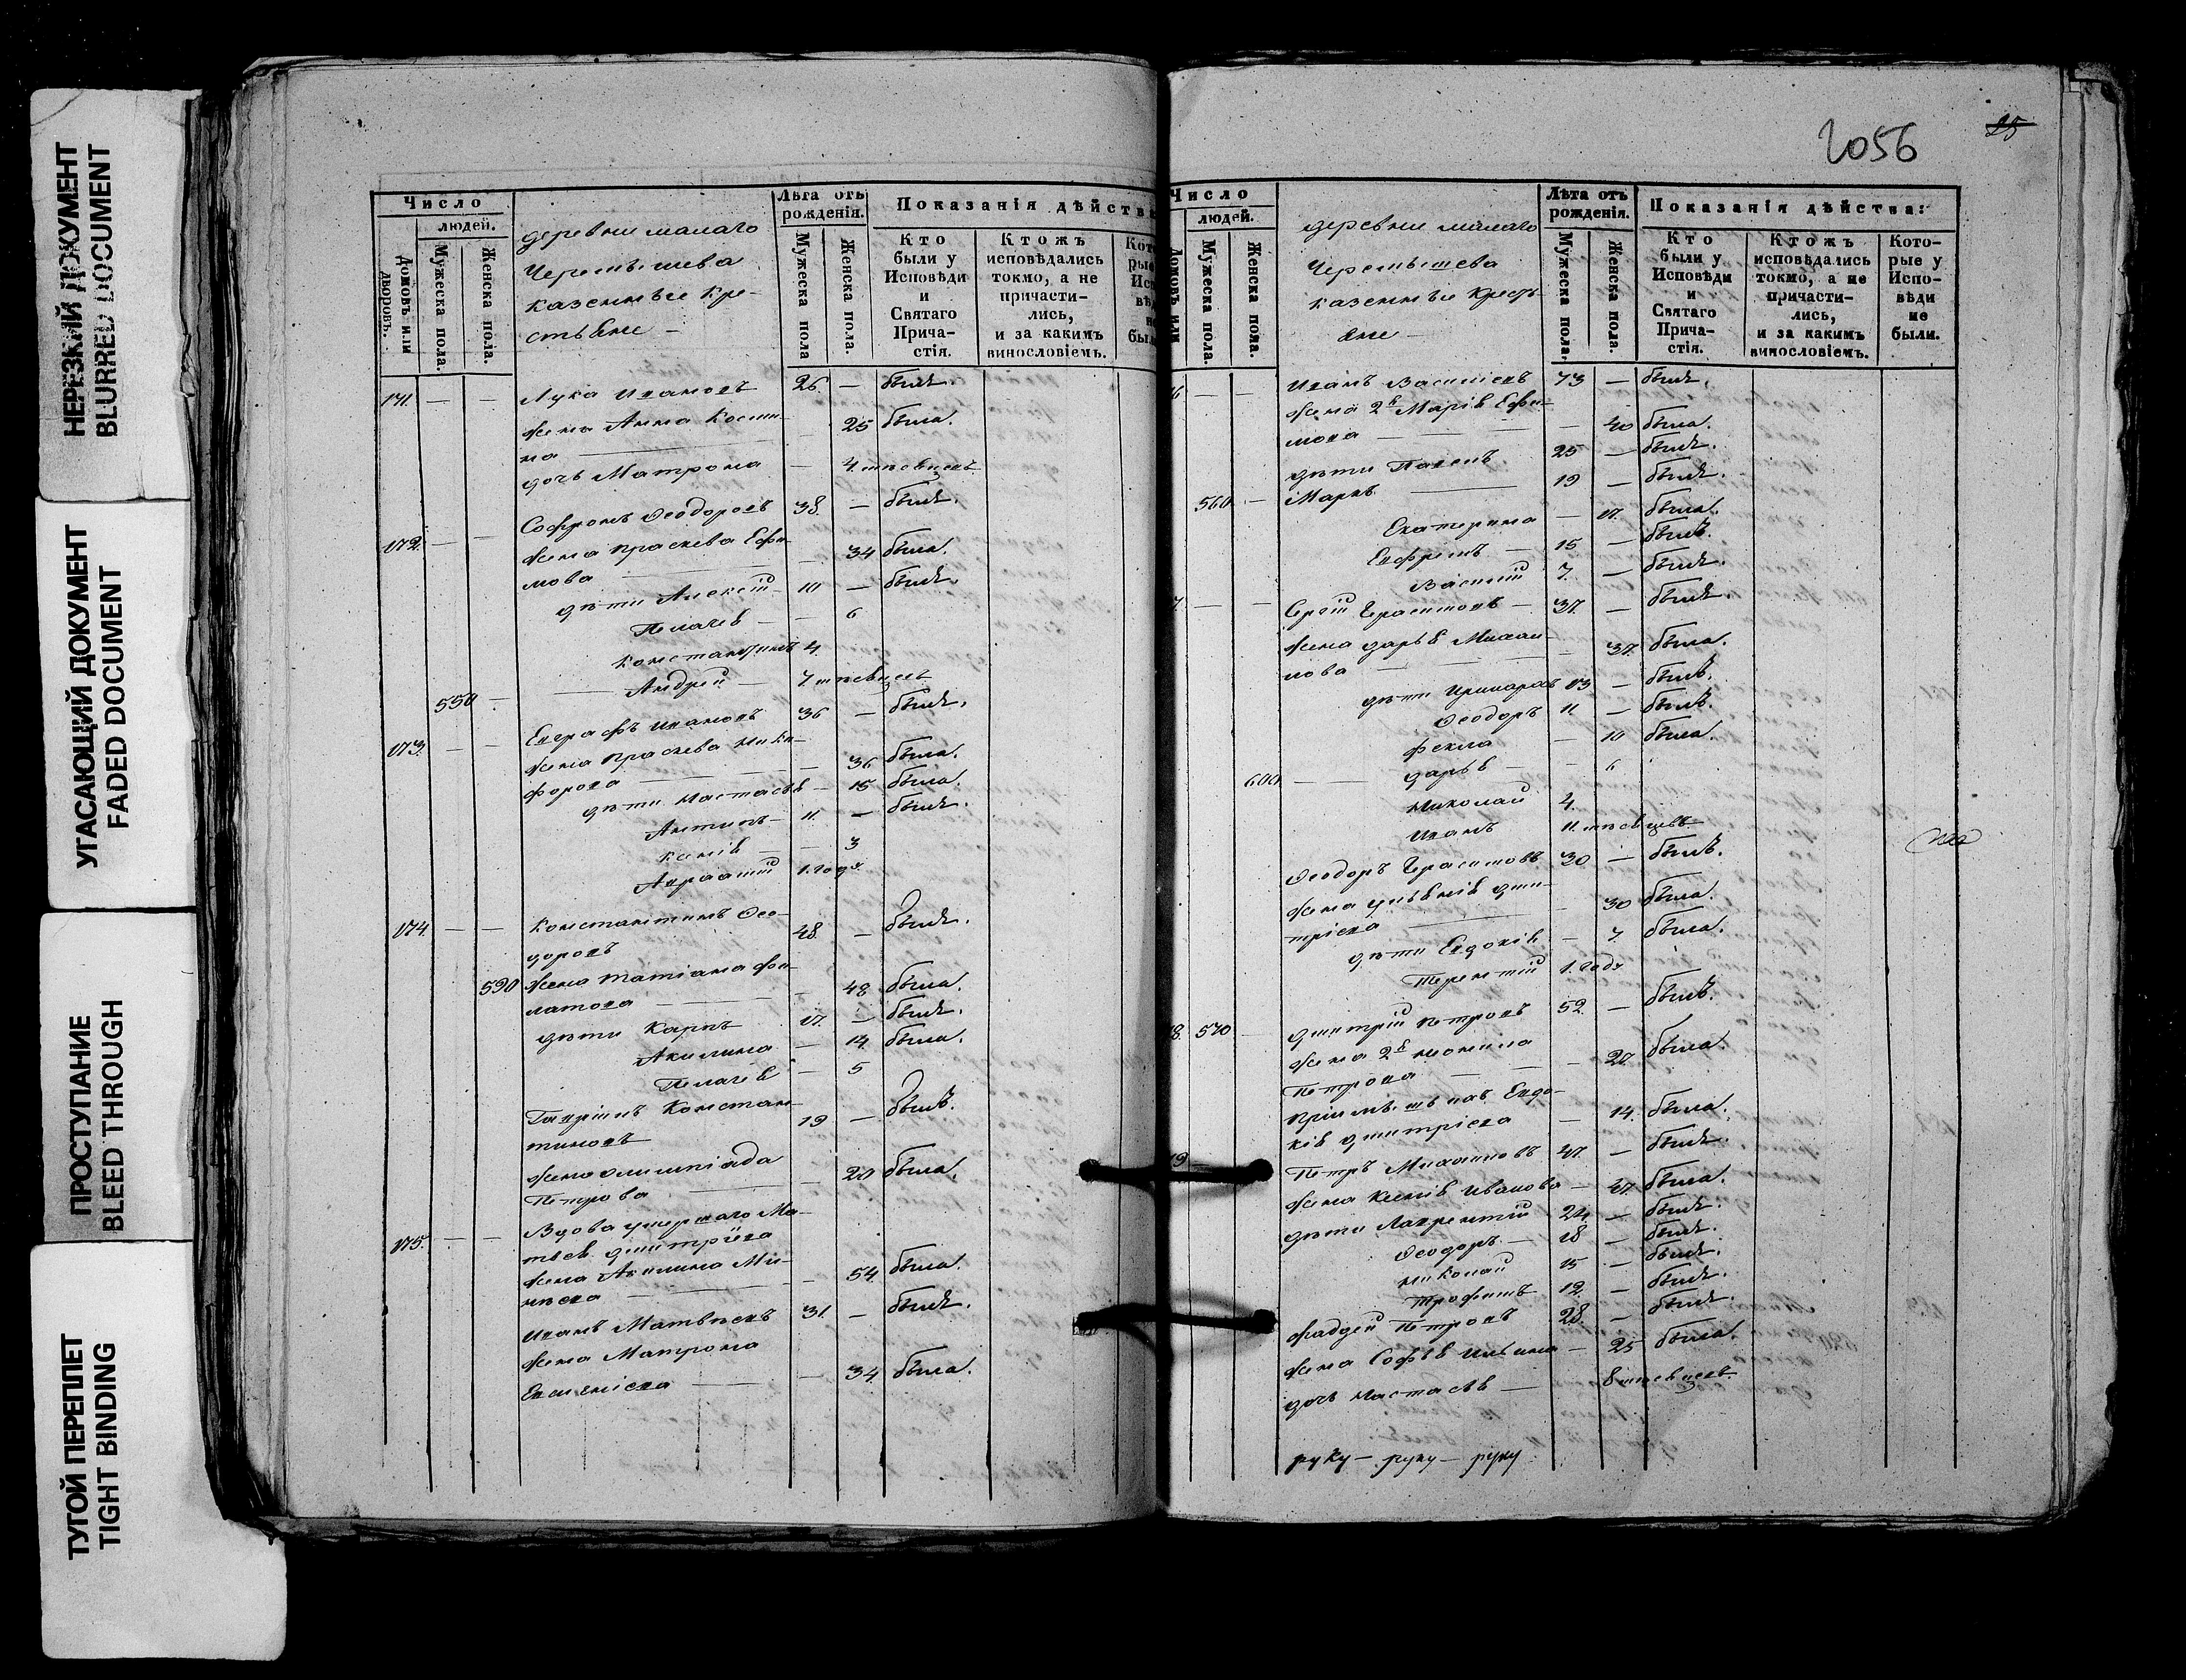 НЕРЕЗКИЙ ДОКУМЕНТ
BLURRED DOCUMENT
УГАСАЮЩИЙ ДОКУМЕНТ
FADED DOCUMENT
ПРОСТУПАНИЕ
BLEED THROUGH
ТУГОЙ ПЕРЕПЛЕТ
TIGHT BINDING
Число
людей.
Домовъ или дворовъ.
Мужеска пола.
Женска пола.
деревни малаго
Черемышева
казенные кре-
стьяне —
Лѣта отъ рожденія.
Мужеска пола
Женска пола.
Показанія дѣйства
Кто были у Исповѣди и Святаго Прича-стія.
Ктожъ исповѣдались токмо, а не причасти-лись, и за какимъ винословіемъ.
171. — — Лука Ивановъ 26. — былъ.
жена Анна Косми-
на — 25 была.
дочь Матрона — 4. мѣсяцевъ
172. — — Софронъ Ѳеодоровъ 38. — былъ.
жена Праскева Ефи-
мова — 34 была.
дѣти Алексѣй 10 — былъ.
Пелагея — — 6
Константинъ 4.
550 — Андрей — 7. мѣсяцевъ
173. — — Евграфъ Ивановъ 36 — былъ.
жена Праскева Ники-
форова — 36 была.
дѣти Настасья — 15 была.
Антипъ — 11. — былъ.
— — 3
1. годъ
174. — — Константинъ Ѳео-
доровъ 48. — былъ.
590 жена Татіана Фи-
латова — 48 была.
дѣти Карпъ 17. — былъ.
Акилина — 14. была.
Пелагея — 5
Гавріилъ Констан-
тиновъ 19 — былъ.
жена Олимпіада
Петрова — 20 была.
175. — — Вдова умершаго Ма-
твея Дмитріева
жена Акилина Ми-
нѣева — 54. была.
Иванъ Матвѣевъ 31. — былъ.
жена Матрона
— 34. была.
2056
25
Число
людей.
Домовъ или
Мужеска пола.
Женска пола.
деревни малаго
Черемышева
казенные кресть-
яне —
Лѣта отъ рожденія.
Мужеска пола.
Женска пола.
Показанія дѣйства:
Кто были у Исповѣди и Святаго Прича-стія.
Ктожъ исповѣдались токмо, а не причасти-лись, и за какимъ винословіемъ.
Кото-рые у Испо-вѣди не были.
6 — — Иванъ Василіевъ 73 — былъ.
жена 2я Марія Ефи-
мова — — 40 была.
дѣти Павелъ 25 — былъ.
560 — Маркъ — 19 — былъ.
Екатерина — 17. была.
Евфремъ — 15 — былъ.
Василій 7. — былъ.
7. — — Сергій Герасимовъ — 37. — былъ.
жена Дарья Михаи-
лова — 37. была.
дѣти Иринархъ 13 — былъ.
Ѳеодоръ 11. — былъ.
Фекла — 10 была.
600 — Дарья — — 6
Николай 4.
Иванъ 11. мѣсяцевъ
Ѳеодоръ Герасимовъ 30 — былъ.
жена Ульянія Дми-
тріева — 30 была.
дѣти Евдокія — 7. была.
Терентій 1. годъ
8. 570 — Дмитрій Петровъ 52. — былъ.
жена 2я Неонила
Петрова — — 20. была.
Евдо-
кія Дмитріева — 14. была.
9 — Петръ 47. — былъ.
жена Ксенія Иванова — 47. была.
дѣти Лаврентій 24. — былъ.
Ѳеодоръ — 18 — былъ.
Николай 15 — былъ.
Трофимъ 12. — былъ.
Фаддей Петровъ 28. — былъ.
жена Софья Ильина — 25 была.
дочь Настасья — 8 мѣсяцевъ.
руку — руку — руку